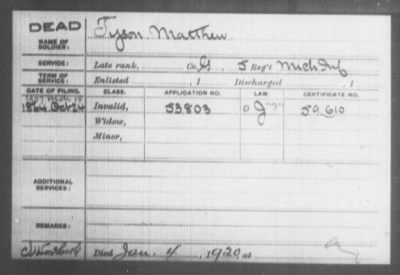 DEAD
NAME OF SOLDIER: Tyson Matthew
SERVICE: Late rank, Co. G, 5 Reg't Mich Inf
TERM OF SERVICE: Enlisted , 1 Discharged , 1
DATE OF FILING. CLASS. APPLICATION NO. LAW. CERTIFICATE NO.
1864 Oct 24 Invalid, 53,803 59,610
Widow,
Minor,
ADDITIONAL SERVICES:
REMARKS:
Died Jan. 4, 1920, at